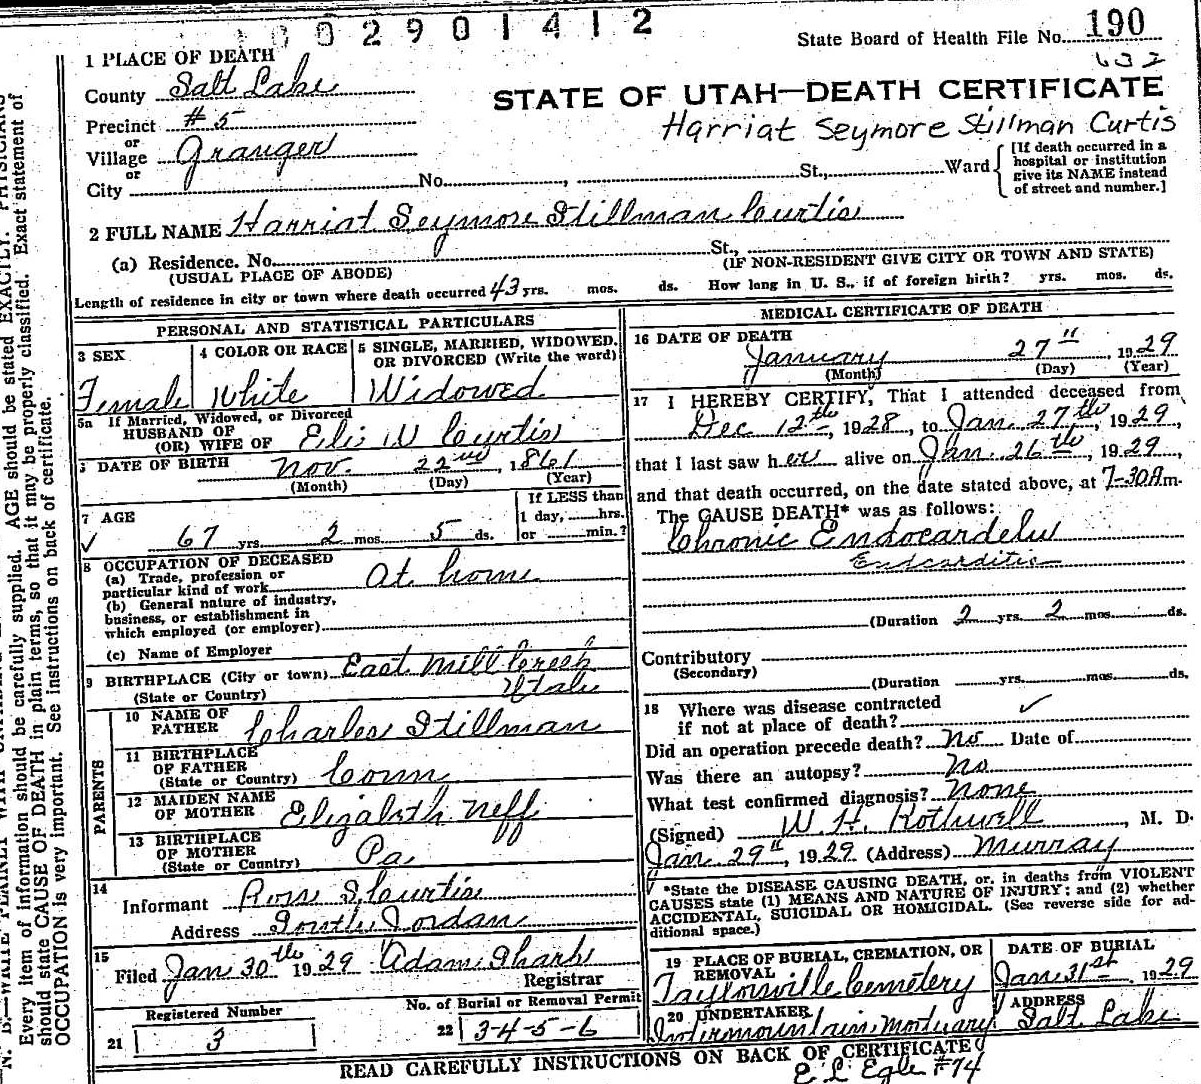 0 0 2 9 0 1 4 1 2
State Board of Health File No. 190
632
1 PLACE OF DEATH
County Salt Lake
STATE OF UTAH—DEATH CERTIFICATE
Precinct # 5
Harriat Seymore Stillman Curtis
or
Village Granger
or
City No. , St., Ward
[If death occurred in a
hospital or institution
give its NAME instead
of street and number.]
2 FULL NAME Harriat Seymore Stillman Curtis
(a) Residence. No. St.,
(USUAL PLACE OF ABODE) (IF NON-RESIDENT GIVE CITY OR TOWN AND STATE)
Length of residence in city or town where death occurred 43 yrs. mos. ds. How long in U. S., if of foreign birth? yrs. mos. ds.
PERSONAL AND STATISTICAL PARTICULARS
3 SEX
Female
4 COLOR OR RACE
White
5 SINGLE, MARRIED, WIDOWED,
OR DIVORCED (Write the word)
Widowed
5a If Married, Widowed, or Divorced
HUSBAND OF
(OR) WIFE OF Eli W Curtis
DATE OF BIRTH Nov. 22nd, 1861
(Month) (Day) (Year)
7 AGE
67 yrs. 2 mos. 5 ds.
If LESS than
1 day, hrs.
or min.?
8 OCCUPATION OF DECEASED
(a) Trade, profession or
particular kind of work At home
(b) General nature of industry,
business, or establishment in
which employed (or employer)
(c) Name of Employer
9 BIRTHPLACE (City or town) East Mill Creek
(State or Country) Utah
PARENTS
10 NAME OF
FATHER Charles Stillman
11 BIRTHPLACE
OF FATHER
(State or Country) Conn
12 MAIDEN NAME
OF MOTHER Elizabeth Neff
13 BIRTHPLACE
OF MOTHER
(State or Country) Pa
14
Informant Ross S. Curtis
Address South Jordan
15
Filed Jan 30th 1929 Adam Sharp
Registrar
Registered Number
21 3
No. of Burial or Removal Permit
22 3-4-5-6
MEDICAL CERTIFICATE OF DEATH
16 DATE OF DEATH
January 27", 1929
(Month) (Day) (Year)
17 I HEREBY CERTIFY, That I attended deceased from
Dec 12th, 1928, to Jan. 27th, 1929,
that I last saw her alive on Jan. 26th, 1929,
and that death occurred, on the date stated above, at 7-30A.m.
The CAUSE DEATH* was as follows:
Chronic
(Duration 2 yrs. 2 mos. ds.
Contributory
(Secondary)
(Duration yrs. mos. ds.
18 Where was disease contracted
if not at place of death? ✓
Did an operation precede death? No Date of
Was there an autopsy? No
What test confirmed diagnosis? None
(Signed) W. H. Rothwell, M. D.
Jan 29", 1929 (Address) Murray
*State the DISEASE CAUSING DEATH, or, in deaths from VIOLENT
CAUSES state (1) MEANS AND NATURE OF INJURY; and (2) whether
ACCIDENTAL, SUICIDAL OR HOMICIDAL. (See reverse side for ad-
ditional space.)
19 PLACE OF BURIAL, CREMATION, OR
REMOVAL
Taylorsville Cemetery
DATE OF BURIAL
Jan. 31st 1929
20 UNDERTAKER
Intermountain Mortuary
ADDRESS
Salt Lake
READ CAREFULLY INSTRUCTIONS ON BACK OF CERTIFICATE
#74
Every item of information should be carefully supplied. AGE should be stated EXACTLY. PHYSICIANS
should state CAUSE OF DEATH in plain terms, so that it may be properly classified. Exact statement of
OCCUPATION is very important. See instructions on back of certificate.